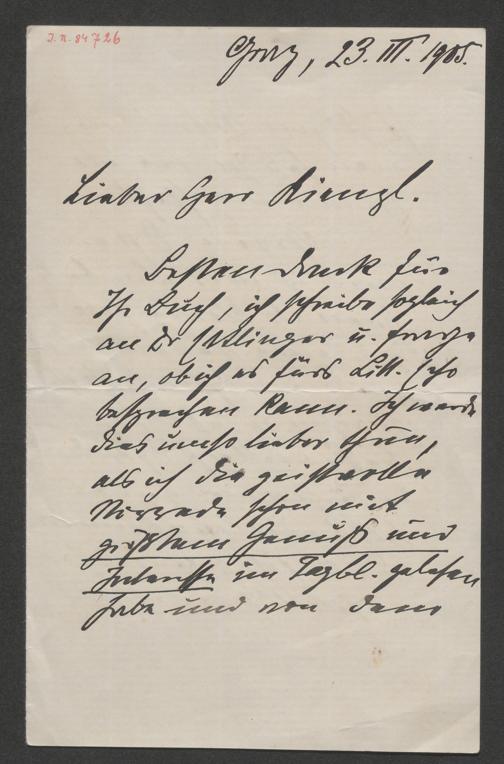 J.N. 84726
Graz, 23. III. 1905.
Lieber Herr Kienzl.
Besten Dank für
Ihr Buch, ich schreibe sogleich
an Dr Ettlinger u. frage
an, ob ich es fürs Litt. Echo
besprechen kann. Ich werde
dies umso lieber thun,
als ich die geistvolle
Vorrede schon mit
größtem Genuß und
Interesse im Tagbl. gelesen
habe und von dem